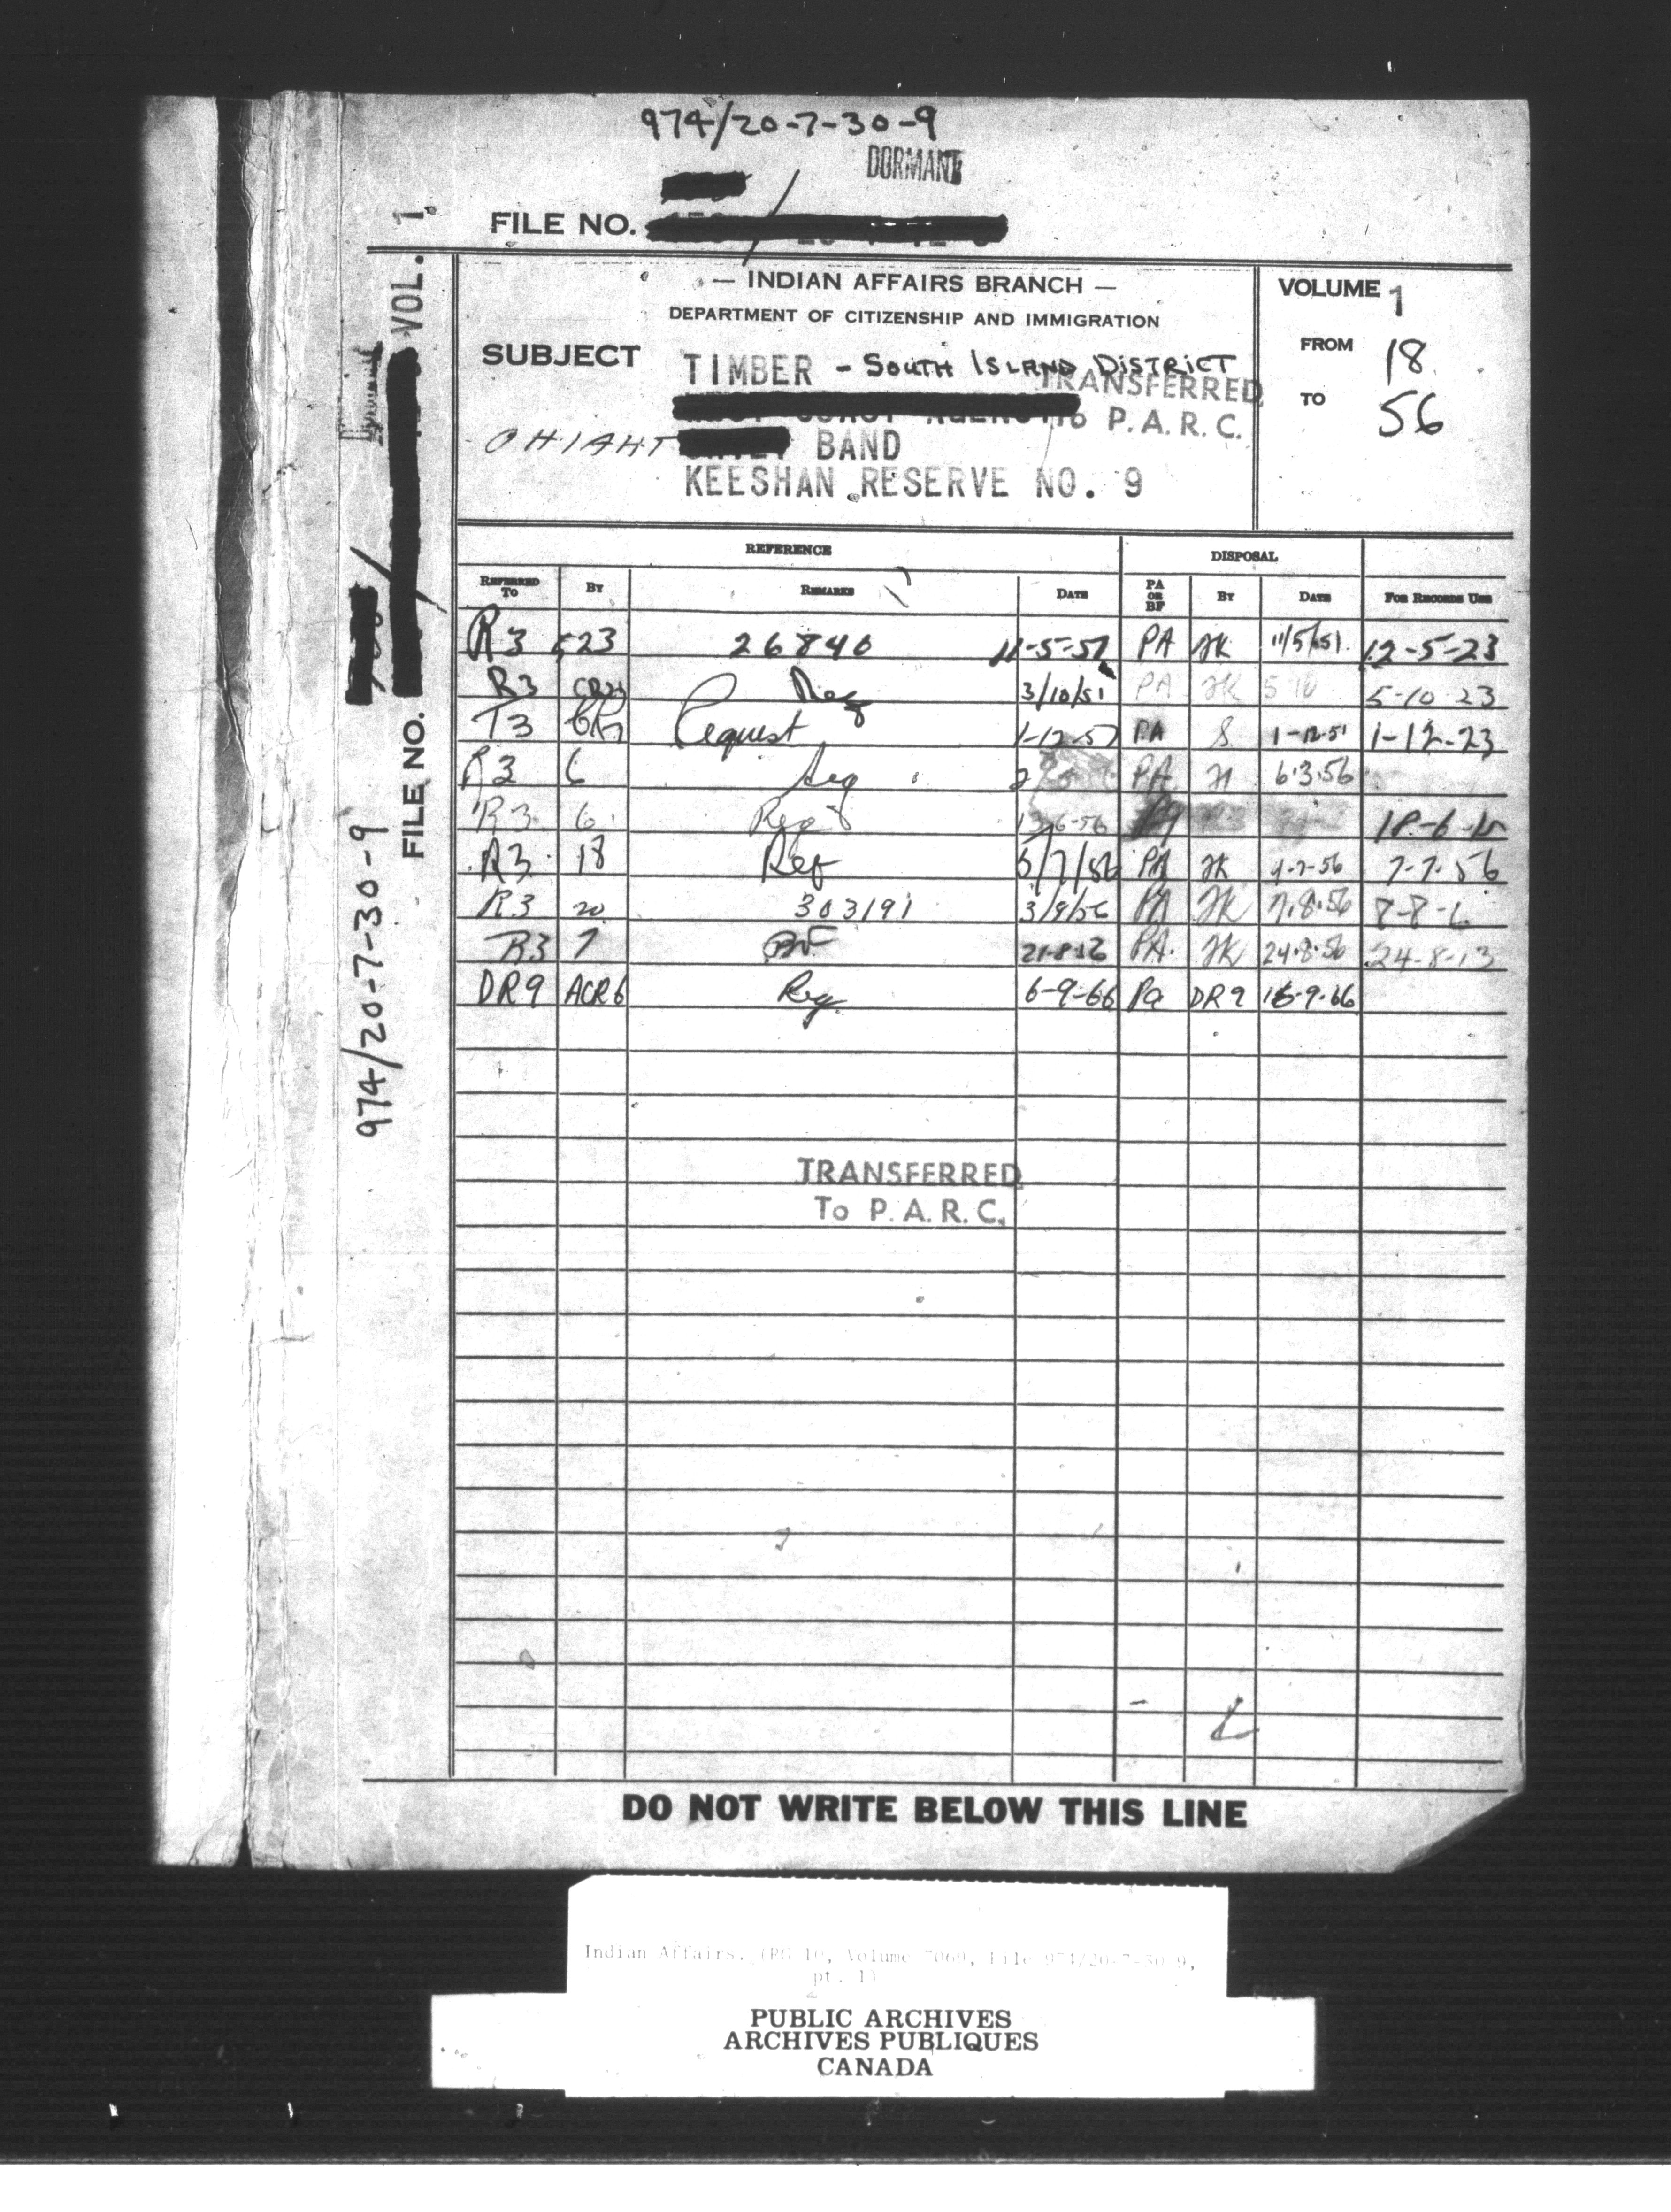 974/20-7-30-9
DORMANT
FILE NO.
— INDIAN AFFAIRS BRANCH —
DEPARTMENT OF CITIZENSHIP AND IMMIGRATION
VOLUME 1
FROM 18
TO 56
SUBJECT TIMBER - SOUTH ISLAND DISTRICT
TRANSFERRED
To P. A. R. C.
OHIAHT BAND
KEESHAN RESERVE NO. 9
VOL. 1
FILE NO.
974/20-7-30-9
REFERENCE DISPOSAL
REFERRED TO BY REMARKS DATE PA OR BF BY DATE FOR RECORDS USE
R3 523 26840 11-5-51 PA JK 11/5/51. 12-5-23
R3 CR23 Req 3/10/51 PA JK 5-10 5-10-23
T3 Request 1-12-51 PA S 1-12-51 1-12-23
R3 6 Req PA H 6.3.56
R3 6 Req 13-6-56 PA
R3 18 Ref 5/7/56 PA JK 7-7-56
R3 20 303191 3/8/56 PA JK 7.8.56 8-8-6
R3 7 BF 21-8-56 PA. JK 24.8.56 24-8-13
DR9 ACR6 Req. 6-9-66 Pa DR9 16-9-66
TRANSFERRED
To P. A. R. C.
DO NOT WRITE BELOW THIS LINE
Indian Affairs. (RG 10, Volume 7069, File 974/20-7-30-9,
pt. 1)
PUBLIC ARCHIVES
ARCHIVES PUBLIQUES
CANADA